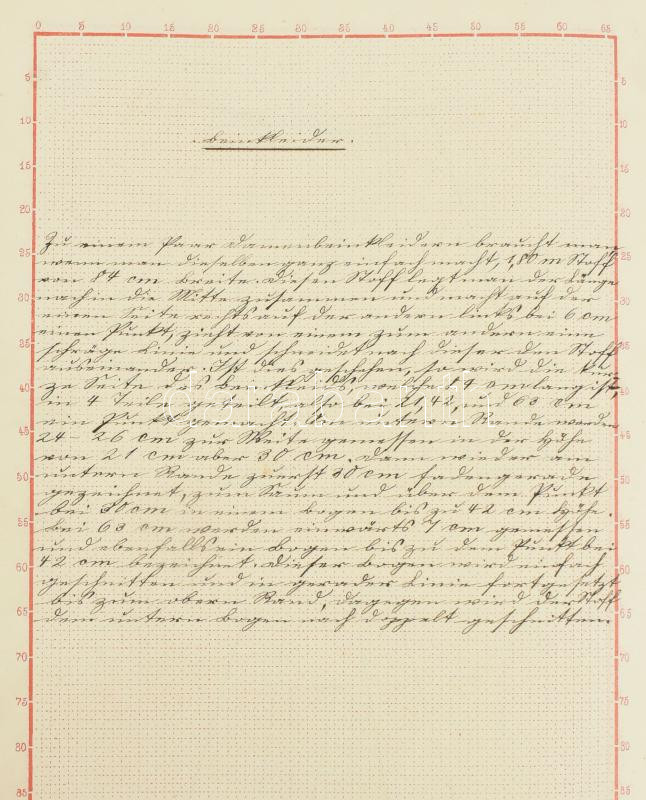 0 5 10 15 20 25 30 35 40 45 50 55 60 65
Beinkleider.
Zu einem Paar Damenbeinkleidern braucht man
wenn man dieselben ganz einfach macht, 1,80 m Stoff
von 84 cm Breite. Diesen Stoff legt man der Länge
nach in die Mitte zusammen und macht auf der
einen Seite rechts auf der andern links bei 6 cm
einen Punkt, zieht von einem zum andern eine
schräge Linie und schneidet nach dieser den Stoff
auseinander. Ist dies geschehen, so wird die
ze Seite des Beinkleides welche 84 cm lang ist,
in 4 Teile geteilt also bei 21, 42, und 63 cm
ein Punkt gemacht. Am untern Rande werden
24 - 26 cm zur Weite gemessen in der Höhe
von 21 cm aber 30 cm. Dann wieder am
untern Rande zuerst 30 cm fadengerade
gezeichnet, zum Saum und über dem Punkt
bei 30 cm in einem Bogen bis zu 42 cm Höhe.
Bei 63 cm werden einwärts 7 cm gemessen
und ebenfalls ein Bogen bis zu dem Punkt bei
42 cm bezeichnet. Dieser Bogen wird einfach
geschnitten und in gerader Linie fortgesetzt
bis zum obern Rand, dagegen wird der Stoff
dem untern Bogen nach doppelt geschnitten.
5 10 15 20 25 30 35 40 45 50 55 60 65 70 75 80 85
5 10 15 20 25 30 35 40 45 50 55 60 65 70 75 80 85
darabanth